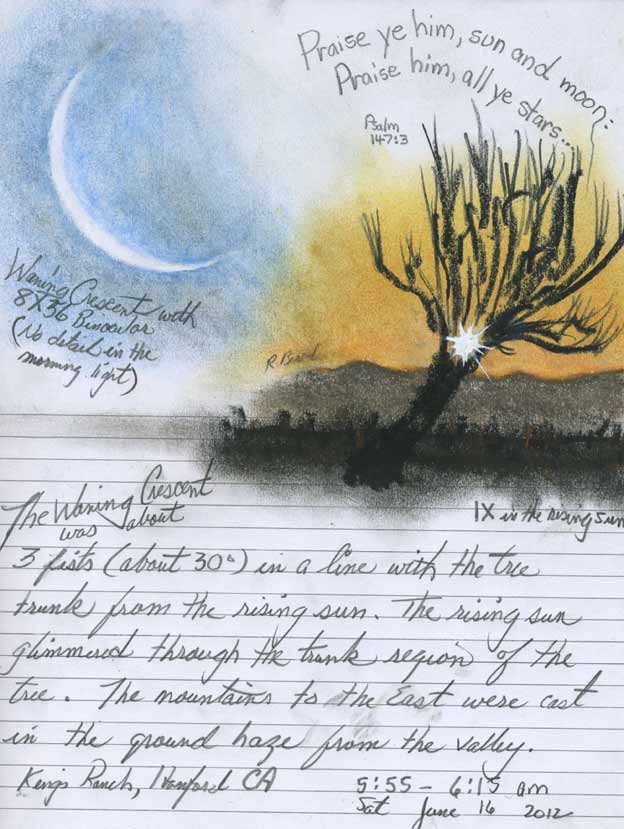 Praise ye him, sun and moon:
Praise him, all ye stars...
Psalm
147:3
Waning Crescent with
8X36 Binocular
(No detail in the
morning light)
The Waning Crescent
was about
1X in the rising sun
3 fists (about 30°) in a line with the tree
trunk from the rising sun. The rising sun
glimmered through the trunk region of the
tree. The mountains to the East were cast
in the ground haze from the valley.
Kings Ranch, Hanford CA
5:55 - 6:15 am
Sat June 16 2012